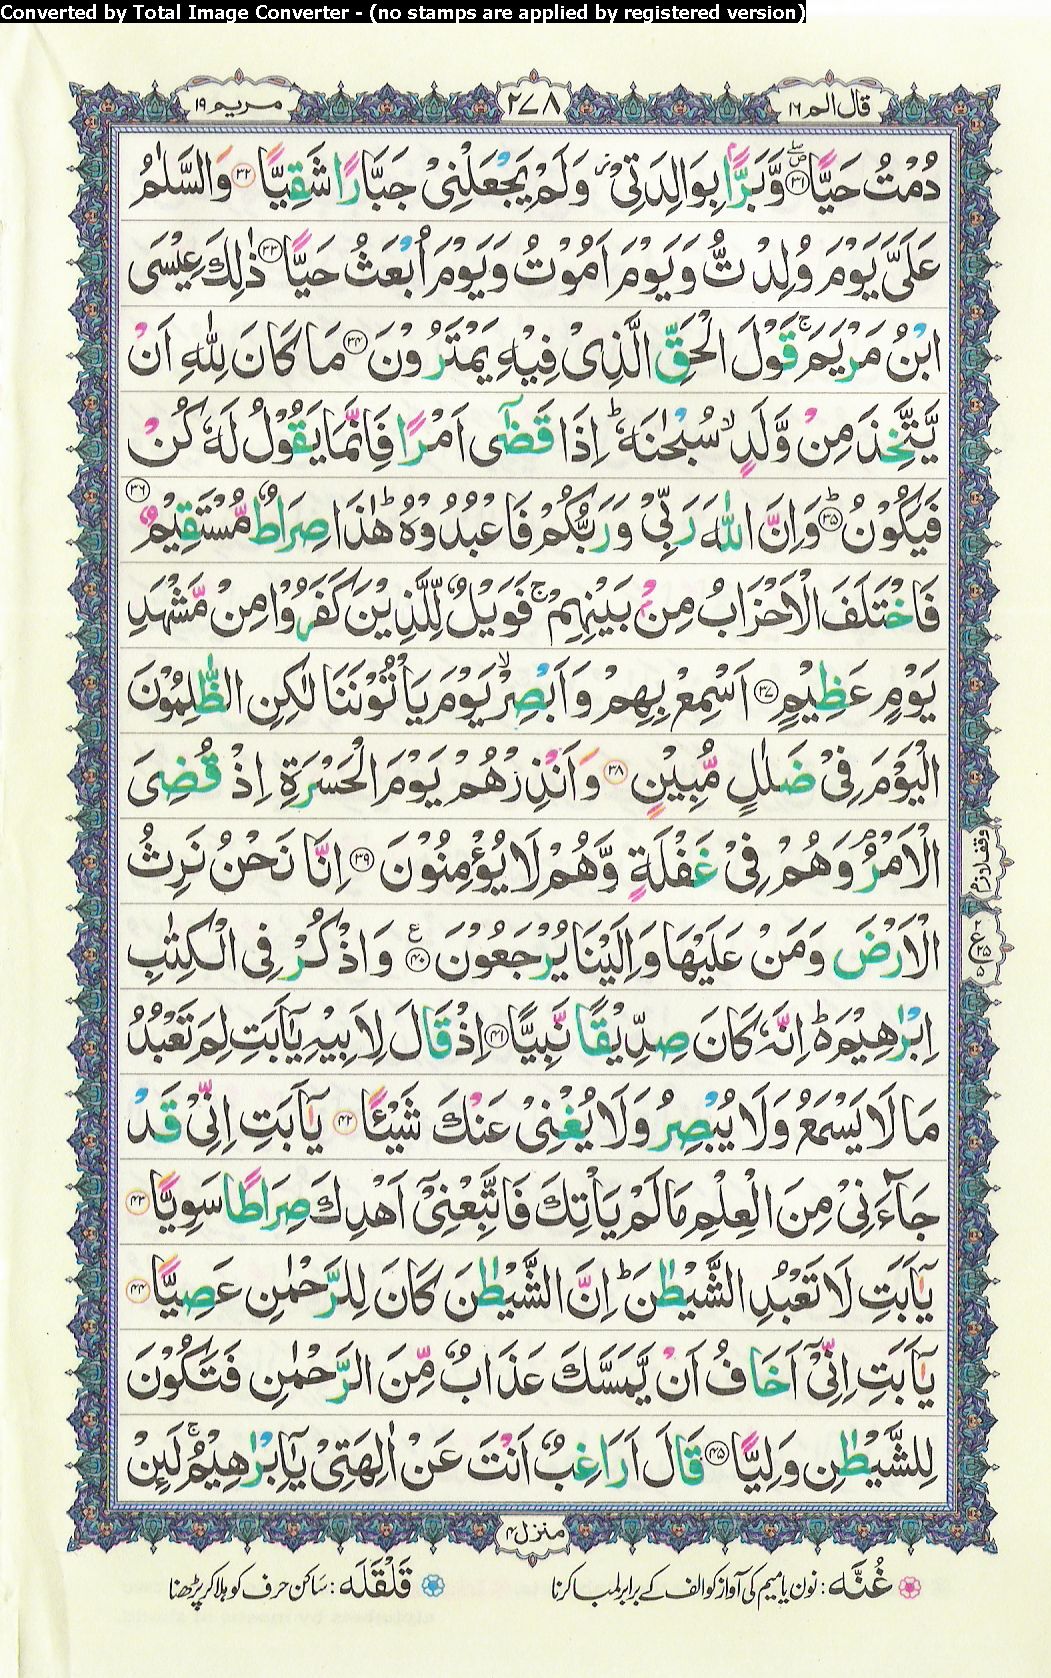 Converted by Total Image Converter - (no stamps are applied by registered version)
قال الم ١٦
٢٧٨
مریم ١٩
دُمْتُ حَيًّا ﴿٣١﴾ وَّبَرًّۢا بِوَالِدَتِیْ ؗ وَلَمْ یَجْعَلْنِیْ جَبَّارًا شَقِیًّا ﴿٣٢﴾ وَالسَّلٰمُ
عَلَیَّ یَوْمَ وُلِدْتُّ وَیَوْمَ اَمُوْتُ وَیَوْمَ اُبْعَثُ حَیًّا ﴿٣٣﴾ ذٰلِكَ عِیْسَی
ابْنُ مَرْیَمَ ۚ قَوْلَ الْحَقِّ الَّذِیْ فِیْهِ یَمْتَرُوْنَ ﴿٣٤﴾ مَا كَانَ لِلّٰهِ اَنْ
یَّتَّخِذَ مِنْ وَّلَدٍ ۙ سُبْحٰنَهٗ ؕ اِذَا قَضٰۤی اَمْرًا فَاِنَّمَا یَقُوْلُ لَهٗ كُنْ
فَیَكُوْنُ ﴿٣٥﴾ؕ وَاِنَّ اللّٰهَ رَبِّیْ وَرَبُّكُمْ فَاعْبُدُوْهُ ؕ هٰذَا صِرَاطٌ مُّسْتَقِیْمٌ ﴿٣٦﴾
فَاخْتَلَفَ الْاَحْزَابُ مِنْۢ بَیْنِهِمْ ۚ فَوَیْلٌ لِّلَّذِیْنَ كَفَرُوْا مِنْ مَّشْهَدِ
یَوْمٍ عَظِیْمٍ ﴿٣٧﴾ اَسْمِعْ بِهِمْ وَاَبْصِرْ ۙ یَوْمَ یَاْتُوْنَنَا لٰكِنِ الظّٰلِمُوْنَ
الْیَوْمَ فِیْ ضَلٰلٍ مُّبِیْنٍ ﴿٣٨﴾ وَاَنْذِرْهُمْ یَوْمَ الْحَسْرَةِ اِذْ قُضِیَ
الْاَمْرُ ۘ وَهُمْ فِیْ غَفْلَةٍ وَّهُمْ لَا یُؤْمِنُوْنَ ﴿٣٩﴾ اِنَّا نَحْنُ نَرِثُ
وقف لازم
الْاَرْضَ وَمَنْ عَلَیْهَا وَاِلَیْنَا یُرْجَعُوْنَ ﴿٤٠﴾ع وَاذْكُرْ فِی الْكِتٰبِ
اِبْرٰهِیْمَ ؕ اِنَّهٗ كَانَ صِدِّیْقًا نَّبِیًّا ﴿٤١﴾ اِذْ قَالَ لِاَبِیْهِ یٰۤاَبَتِ لِمَ تَعْبُدُ
مَا لَا یَسْمَعُ وَلَا یُبْصِرُ وَلَا یُغْنِیْ عَنْكَ شَیْـًٔا ﴿٤٢﴾ یٰۤاَبَتِ اِنِّیْ قَدْ
جَآءَنِیْ مِنَ الْعِلْمِ مَا لَمْ یَاْتِكَ فَاتَّبِعْنِیْۤ اَهْدِكَ صِرَاطًا سَوِیًّا ﴿٤٣﴾
یٰۤاَبَتِ لَا تَعْبُدِ الشَّیْطٰنَ ؕ اِنَّ الشَّیْطٰنَ كَانَ لِلرَّحْمٰنِ عَصِیًّا ﴿٤٤﴾
یٰۤاَبَتِ اِنِّیْۤ اَخَافُ اَنْ یَّمَسَّكَ عَذَابٌ مِّنَ الرَّحْمٰنِ فَتَكُوْنَ
لِلشَّیْطٰنِ وَلِیًّا ﴿٤٥﴾ قَالَ اَرَاغِبٌ اَنْتَ عَنْ اٰلِهَتِیْ یٰۤاِبْرٰهِیْمُ ۚ لَئِنْ
منزل ٤
غُنَّه : نون یا میم کی آواز کو الف کے برابر لمبا کرنا
قَلْقَلَه : ساکن حرف کو ہلا کر پڑھنا